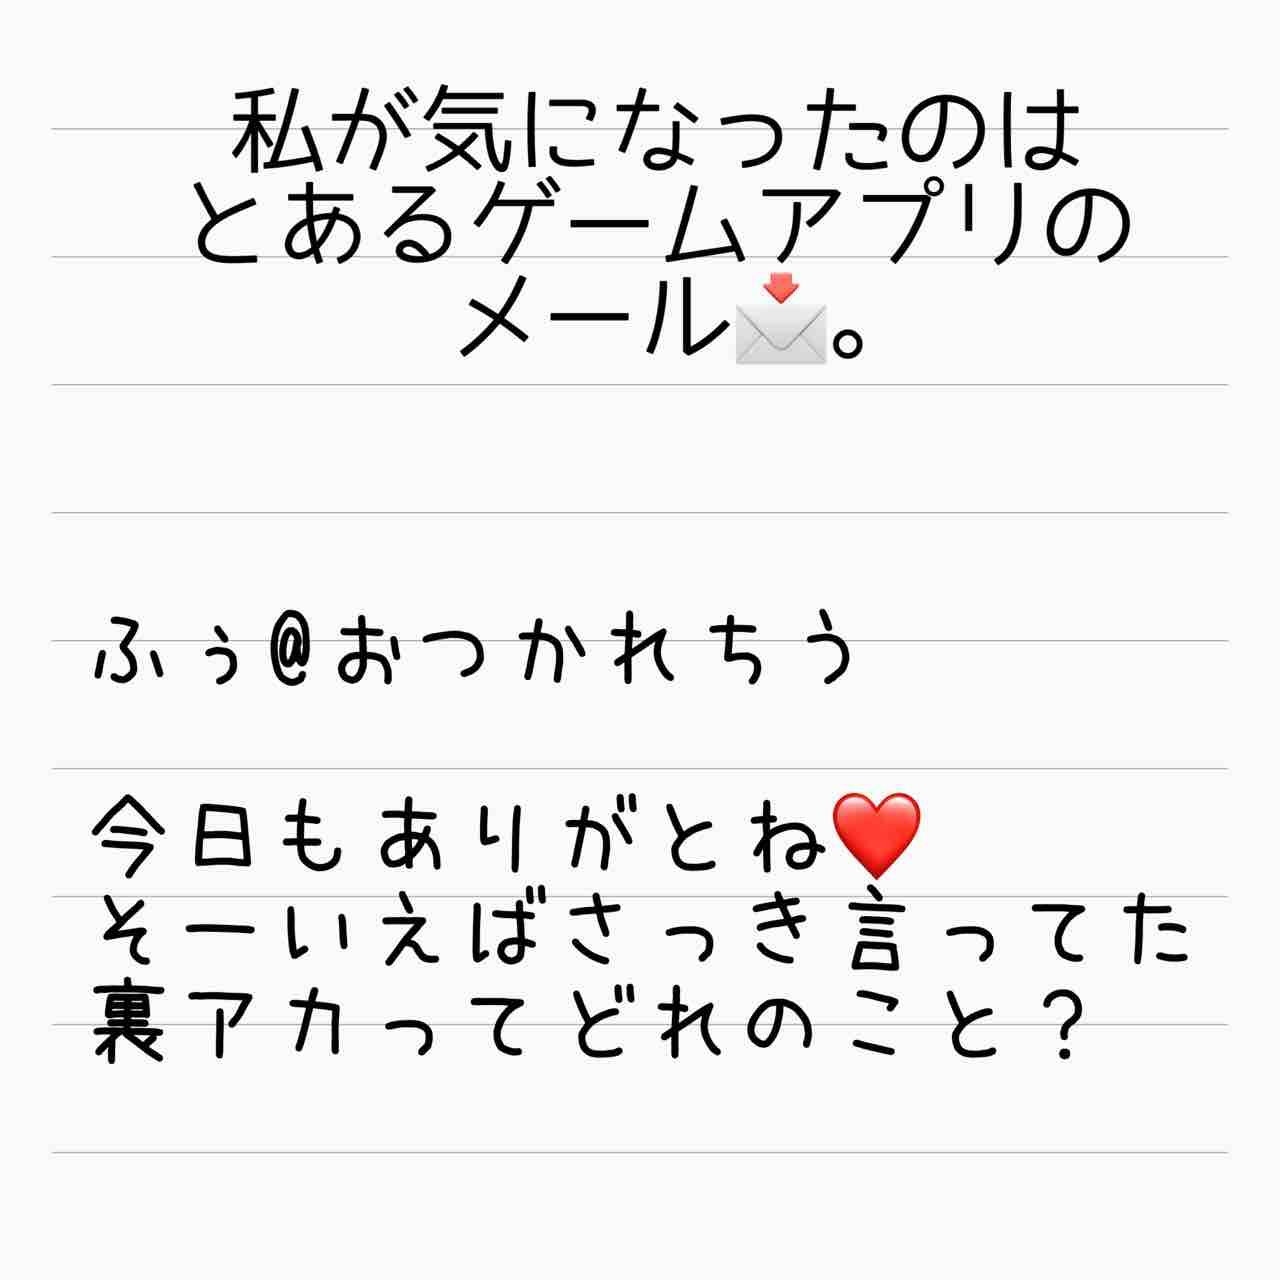 私が気になったのは
とあるゲームアプリの
メール📩。
ふぅ@おつかれちう
今日もありがとね❤️
そーいえばさっき言ってた
裏アカってどれのこと？